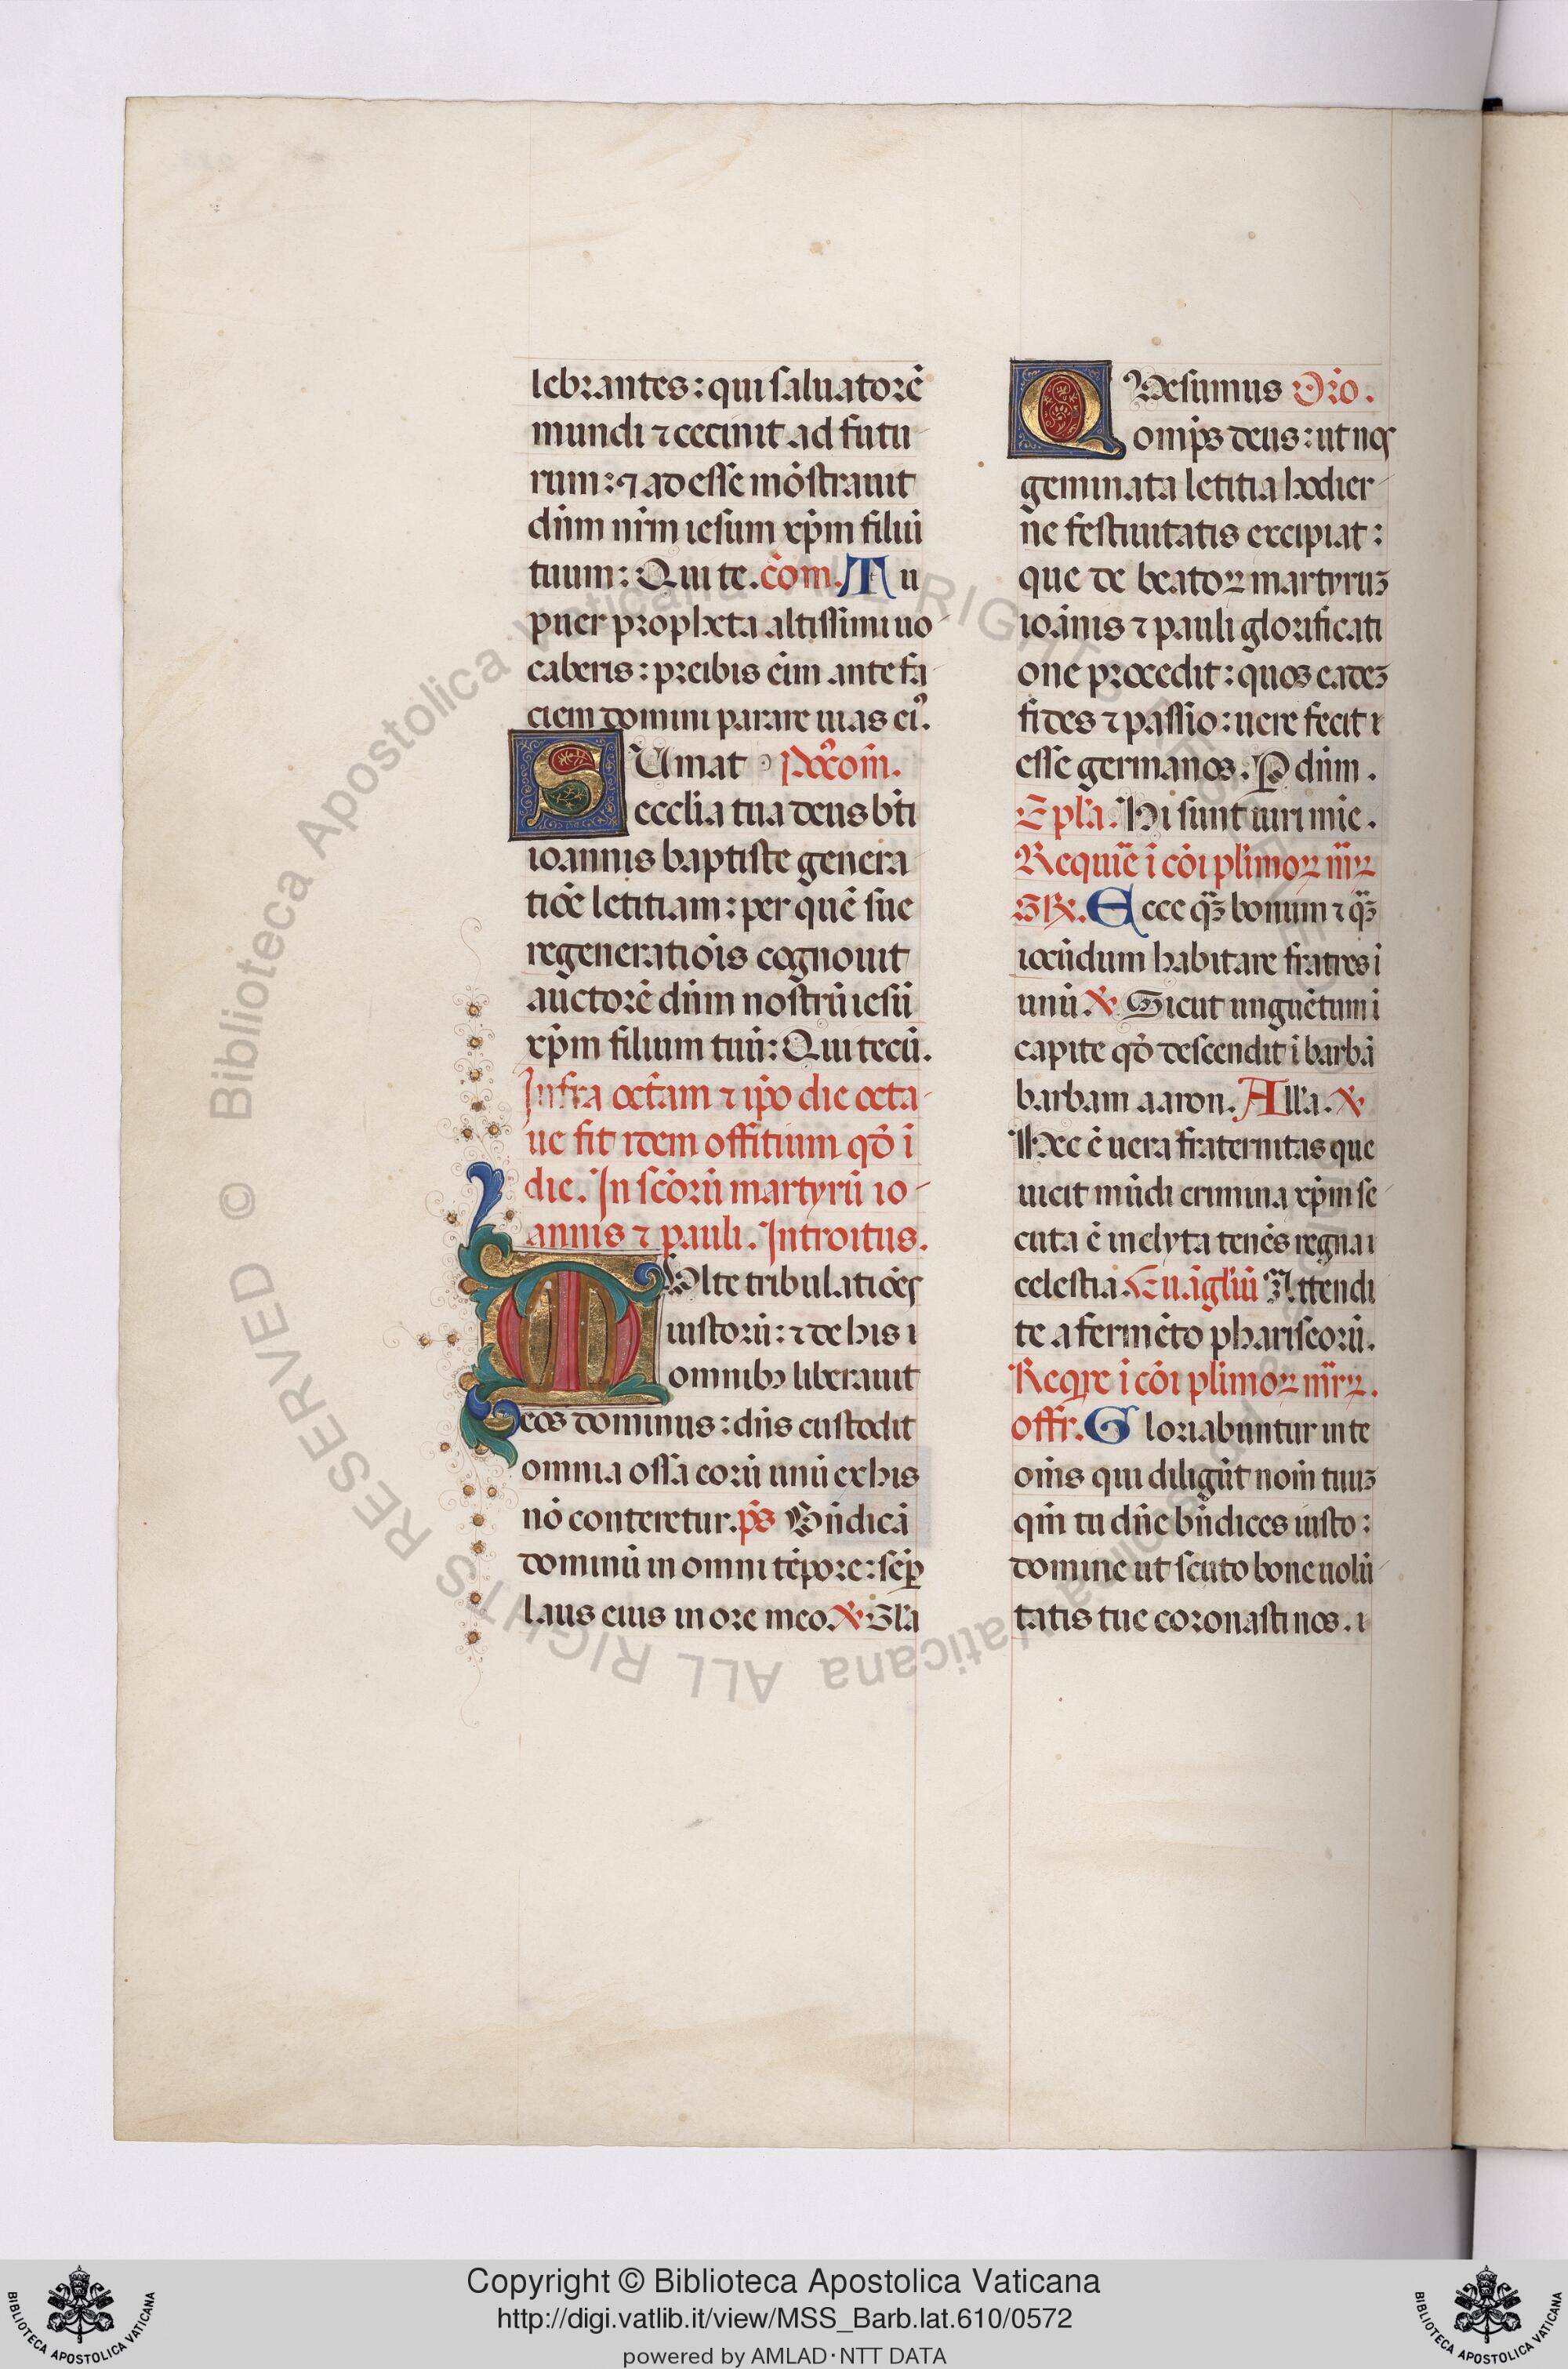 lebrantes: qui saluatorē
mundi ⁊ cecinit ad futu
rum: ⁊ adesse mōstrauit
dn̄m nr̄m iesum xp̄m filiū
tuum: Qui te. cōm. Tu
puer propheta altissimi uo
caberis: preibis eim ante fa
ciem domini parare uias eiꝰ.
SUmat Poꝰcom̄.
ecclīa tua deus btī
ioannis baptiste genera
tiōe letitiam: per quē sue
regeneratiōis cognouit
auctorē dn̄m nostrū iesū
xp̄m filium tuū: Qui tecū.
Infra octām ⁊ ipō die octa
ue fit idem offitium qđ ī
die. In scōrū martyrū io
annis ⁊ pauli. Introitus.
MUlte tribulatiōes
iustorū: ⁊ de his ī
omnibꝫ liberauit
eos dominus: dn̄s custodit
omnia ossa eorū unū ex his
nō conteretur. p̄s Bn̄dicā
dominū in omni tēpore: sēꝑ
laus eius in ore meo. ℣ Gl̄a
QUesumus Orō.
omp̄s deus: ut nos
geminata letitia hodier
ne festiuitatis excipiat:
que de beatoꝝ martyruꝫ
ioānis ⁊ pauli glorificati
one procedit: quos eadeꝫ
fides ⁊ passio: uere fecit ē
esse germanos. P dn̄m.
Epl̄a. Hi sunt uiri mīe.
Requiē ī cōi plīmoꝝ mr̄ꝝ
GR̄. Ecce qꝫ̄ bonum ⁊ qꝫ̄
iocūdum habitare fratres ī
unū. ℣ Sicut unguētum ī
capite qđ descendit ī barbā
barbam aaron. All̄a. ℣
Hec ē uera fraternitas que
uicit mūdi crimina xp̄m se
cuta ē inclyta tenēs regna ī
celestia. Euāgliū Attendi
te a fermēto phariseorū.
Reqre ī cōi plīmoꝝ mr̄ꝝ.
offr̄. Gloriabuntur in te
om̄s qui diligūt nom̄ tuuꝫ
qm̄ tu dn̄e bn̄dices iusto:
domine ut scuto bone uolū
tatis tue coronasti nos. ī
© Biblioteca Apostolica Vaticana ALL RIGHTS RESERVED
Copyright © Biblioteca Apostolica Vaticana
http://digi.vatlib.it/view/MSS_Barb.lat.610/0572
powered by AMLAD·NTT DATA
BIBLIOTECA APOSTOLICA VATICANA
BIBLIOTECA APOSTOLICA VATICANA